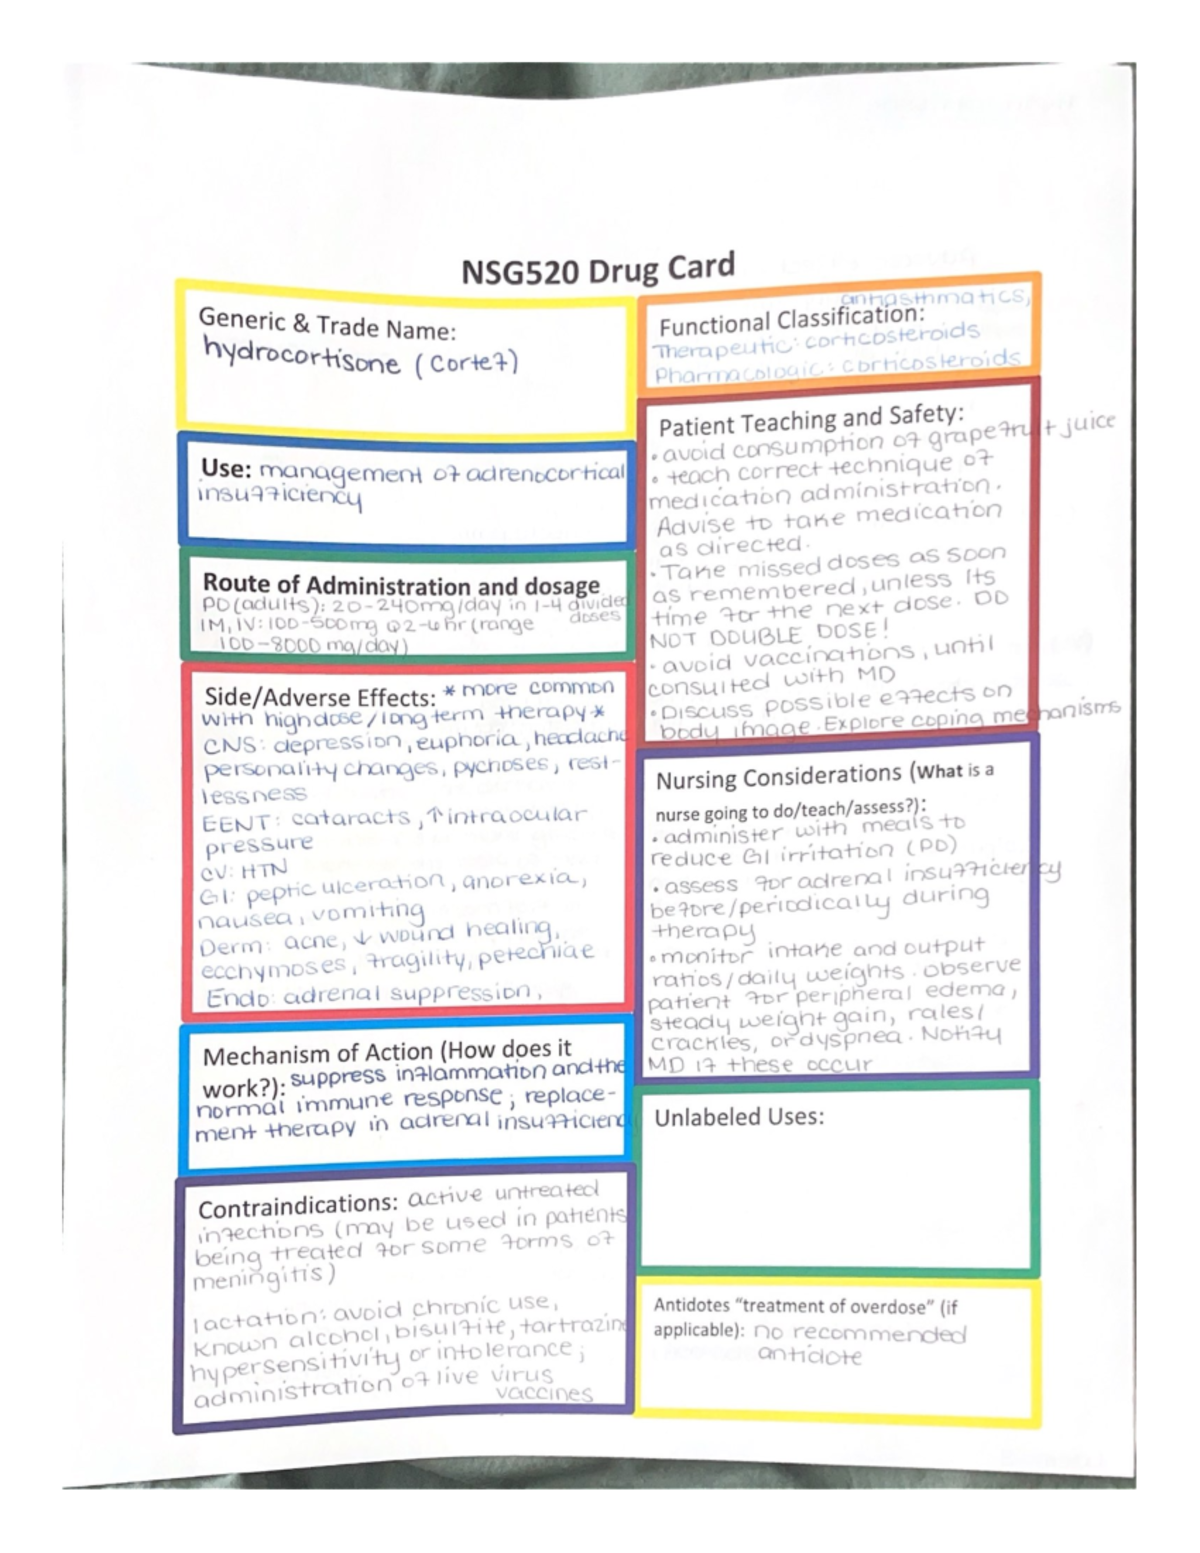 NSG520 Drug Card
Generic & Trade Name:
hydrocortisone (Cortef)
Use: management of adrenocortical
insufficiency
Route of Administration and dosage
PO (adults): 20-240mg/day in 1-4 divided
doses
IM, IV: 100-500mg Q2-6hr (range
100-8000 mg/day)
Side/Adverse Effects: * more common
with high dose/long term therapy *
CNS: depression, euphoria, headache
personality changes, pychoses, rest-
lessness
EENT: cataracts, ↑intraocular
pressure
CV: HTN
GI: peptic ulceration, anorexia,
nausea, vomiting
Derm: acne, ↓ wound healing,
ecchymoses, fragility, petechiae
Endo: adrenal suppression,
Mechanism of Action (How does it
work?): suppress inflammation and the
normal immune response; replace-
ment therapy in adrenal insufficienc
Contraindications: active untreated
infections (may be used in patients
being treated for some forms of
meningitis)
lactation: avoid chronic use,
known alcohol, bisulfite, tartrazine
hypersensitivity or intolerance;
administration of live virus
vaccines
antiasthmatics,
Functional Classification:
Therapeutic: corticosteroids
Pharmacologic: corticosteroids
Patient Teaching and Safety:
• avoid consumption of grapefruit juice
• teach correct technique of
medication administration.
Advise to take medication
as directed.
• Take missed doses as soon
as remembered, unless its
time for the next dose. DO
NOT DOUBLE DOSE!
• avoid vaccinations, until
consulted with MD
• Discuss possible effects on
body image. Explore coping mechanisms
Nursing Considerations (What is a
nurse going to do/teach/assess?):
• administer with meals to
reduce GI irritation (PO)
• assess for adrenal insufficiency
before/periodically during
therapy
• monitor intake and output
ratios/daily weights. observe
patient for peripheral edema,
steady weight gain, rales/
crackles, or dyspnea. Notify
MD if these occur
Unlabeled Uses:
Antidotes "treatment of overdose" (if
applicable): no recommended
antidote